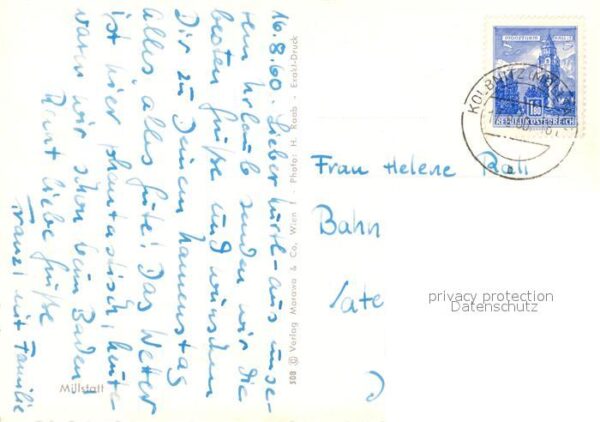 16.8.60. Lieber
aus unse-
rem Urlaub senden wir die
besten Grüße und wünschen
Dir zu Deinem Namenstag
alles alles Gute! Das Wetter
ist hier phantastisch, heute
waren wir schon beim Baden!
Recht liebe Grüße
Franzi mit Familie
Millstatt
508 © Verlag Morawa & Co. Wien I · Photo: H. Raab · Exakt-Druck
REPUBLIK ÖSTERREICH
KOLBNITZ
Frau Helene
Bahn
privacy protection
Datenschutz